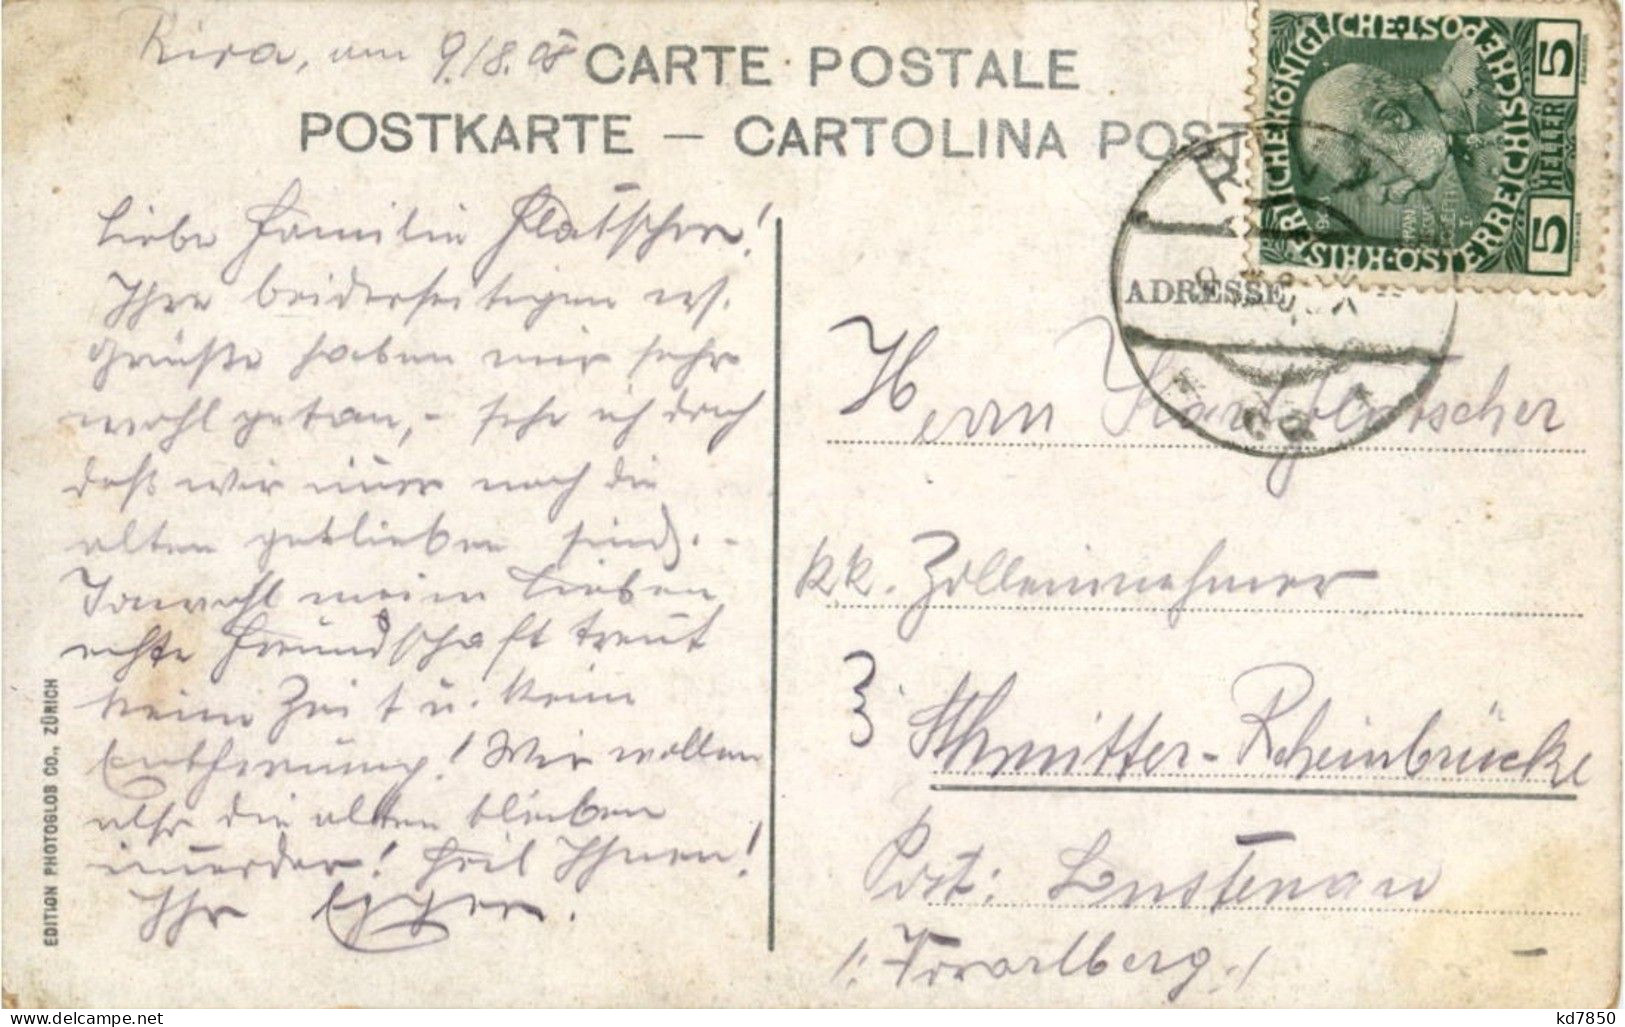 Riva, am 9./8.08
CARTE POSTALE
POSTKARTE — CARTOLINA POST
Liebe Familie Platscher!
Ihre beiderseitigen
Grüße haben mir sehr
wohl getan, - sehe ich doch
daß wir immer noch die
alten geblieben sind. -
Jawohl meine Lieben
echte Freundschaft trennt
keine Zeit u. keine
Entfernung! Wir wollen
also die alten bleiben
immerdar! Heil Ihnen!
Ihr Egger.
EDITION PHOTOGLOB CO., ZÜRICH
KAISERLICHE KÖNIGLICHE POST
ÖSTERREICHISCHE
5 HELLER 5
ADRESSE
Herrn Karl Platscher
kk. Zolleinnehmer
Schmitter-Rheinbrücke
Post: Lustenau
/: Vorarlberg :/
kd7850